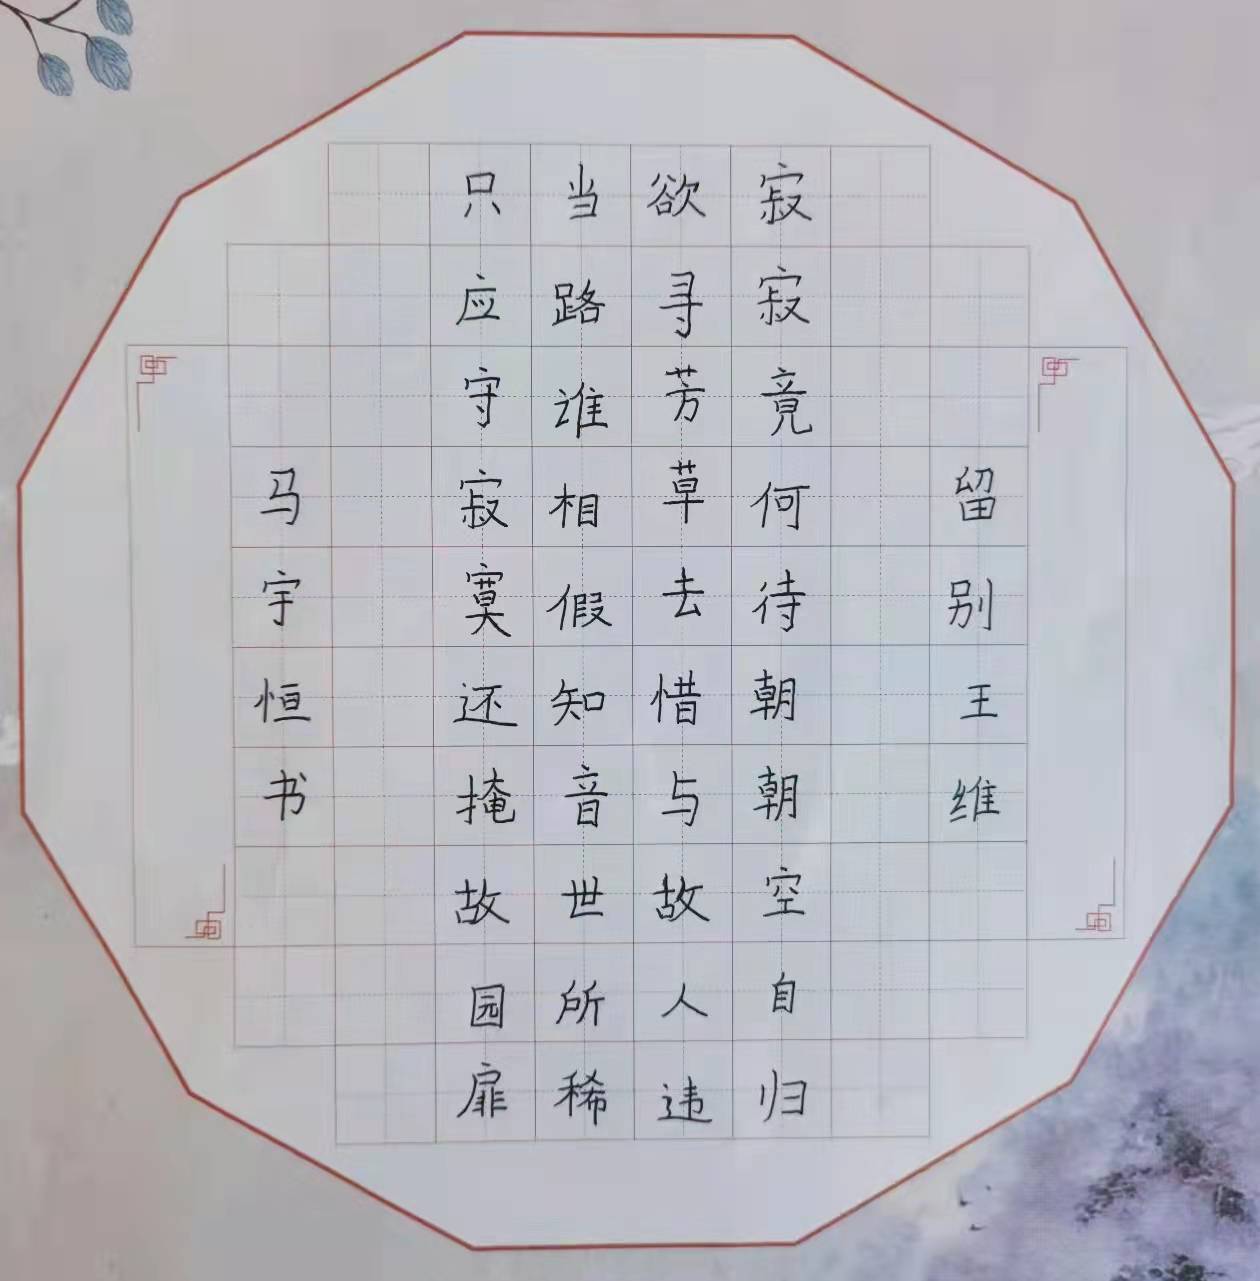 留别王维
寂寂竟何待朝朝空自归
欲寻芳草去惜与故人违
当路谁相假知音世所稀
只应守寂寞还掩故园扉
马宇恒书